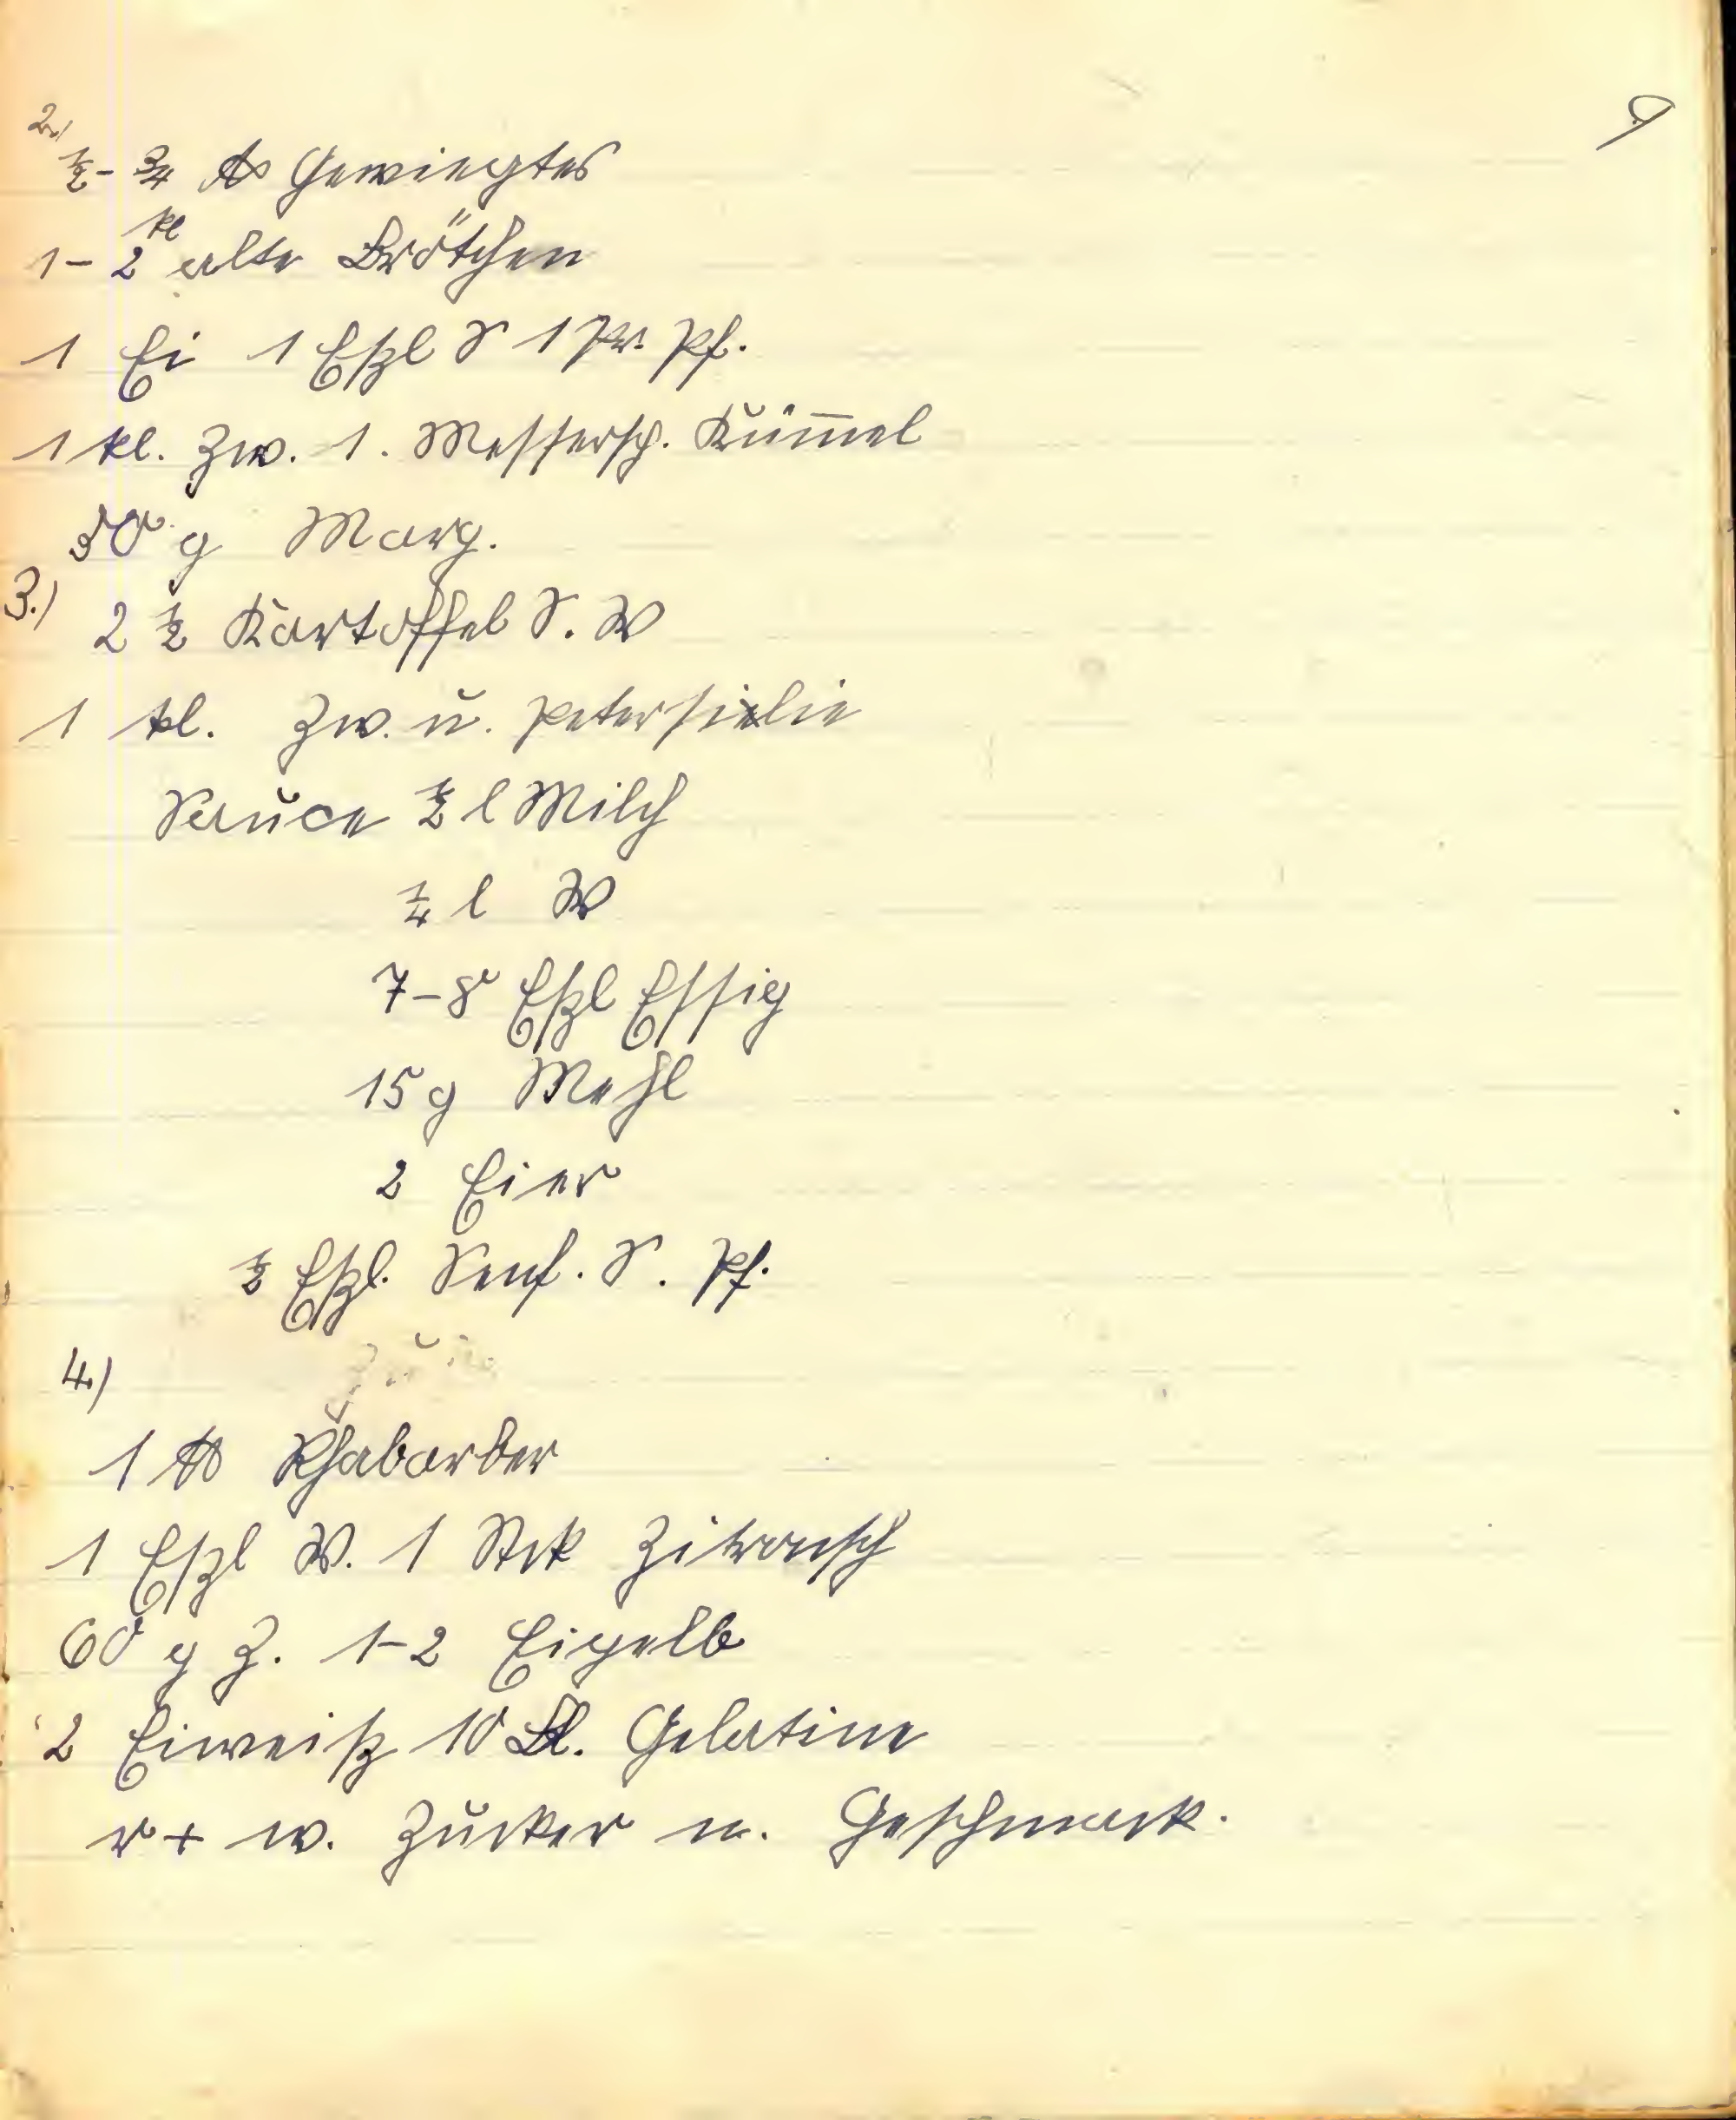 9
2.)
½ - ¾ ℔ Gewiegtes
kl
1 - 2 alte Brötchen
1 Ei 1 Eßl S 1 Pr. Pf.
1 kl. Zw. 1. Messersp. Küm̅el
g Marg.
3.)
2 ½ Kartoffel S. W
1 kl. Zw. u. Petersielie
Sauce ½ l Milch
¼ l W
7-8 Eßl Essig
15 g Mehl
2 Eier
½ Eßl. Senf. S. Pf.
4.)
1 ℔ Rhabarber
1 Eßl W. 1 Stck Zitronsch
60 g Z. 1-2 Eigelb
2 Eiweiß 10 Bl. Gelatine
r + w. Zucker n. Geschmack.